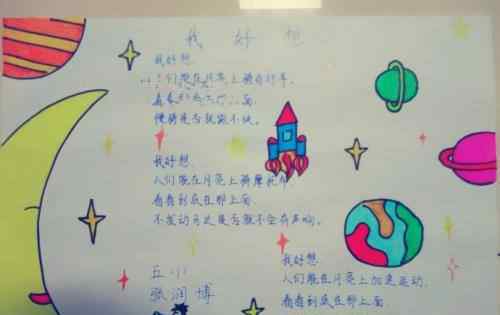 我好想
我好想
们能在月亮上骑自行车.
看看到 上面.
慢骑是否就 不快.
我好想.
人们能在月亮上骑摩托
看看到底在那上面
不发动马达是否就不会有声响.
五小
张润博
我好想.
人们能在月亮上加速运动.
看看到底在那上面.